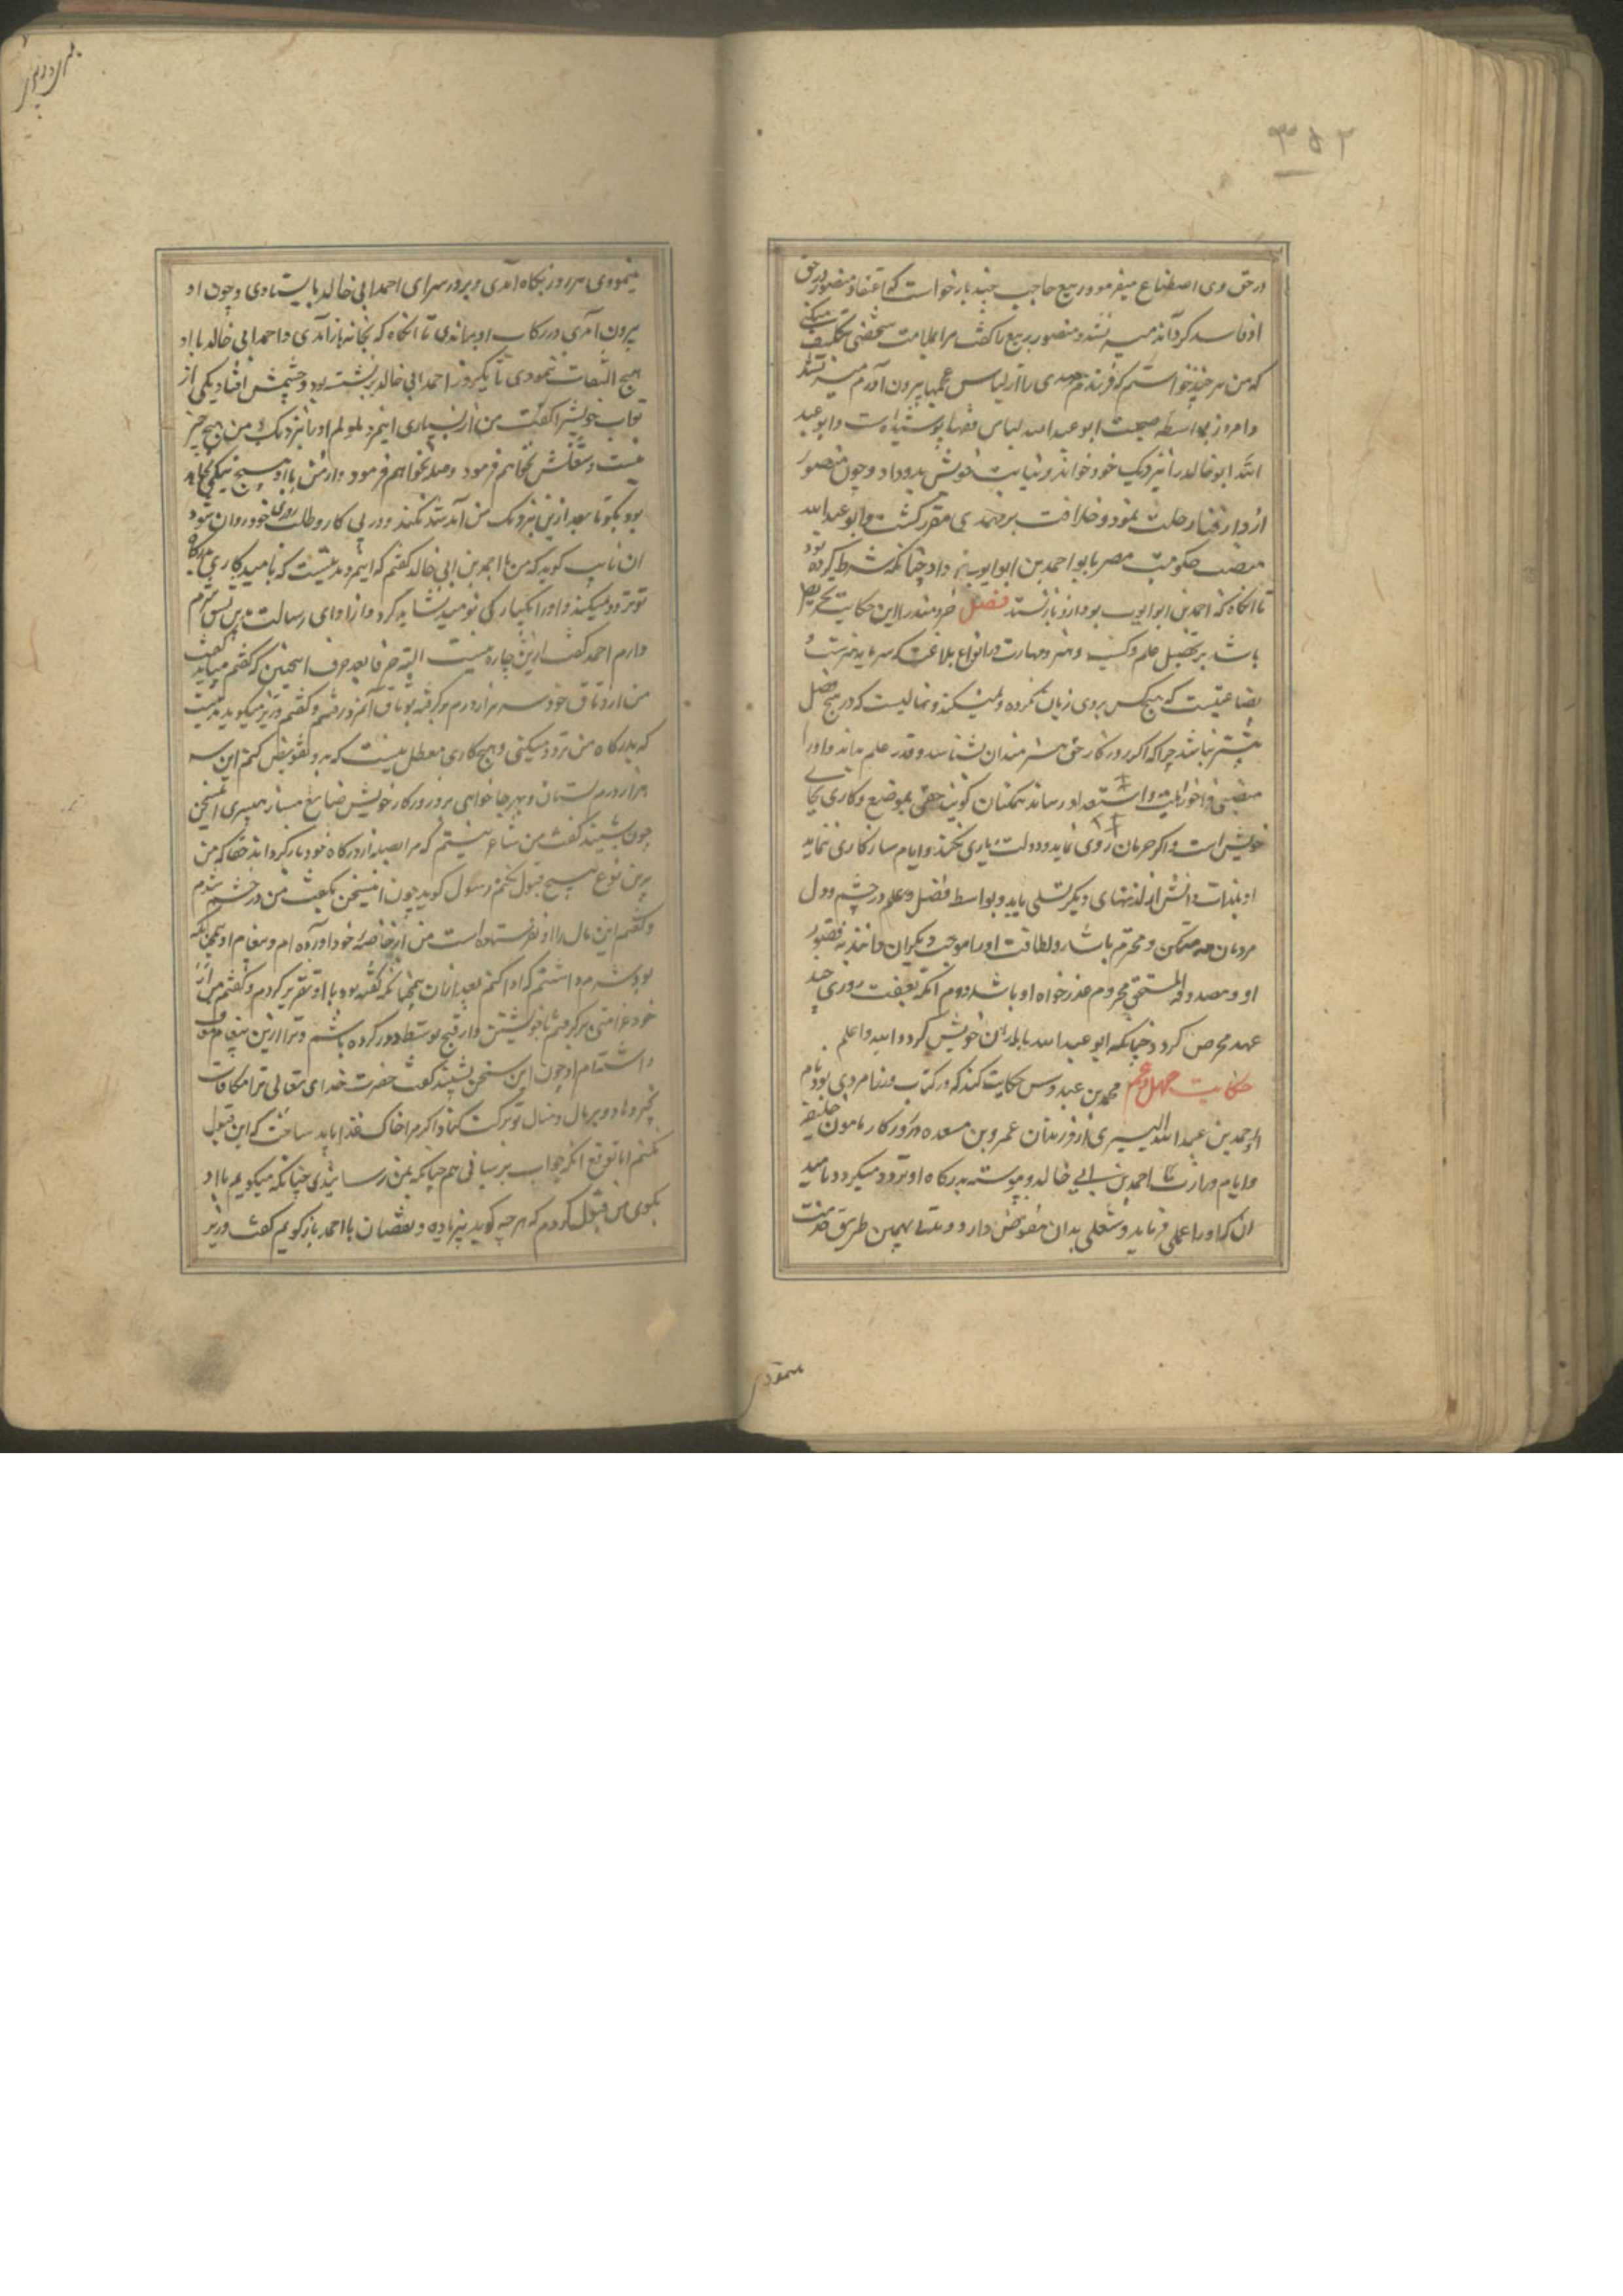 ۳۵۲
در حق وی اصطناع میفرمود ربیع حاجب چند بار خواست که اعتقاد منصور در حق
او فاسد گرداند میسر نشد و منصور ربیع را گفت مرا بملامت شخصی تکلیف میکنی
که من هر چند خواستم که فرزندم مهدی را از لباس عجمها بیرون آورم میسر نشد
و امروز بواسطه صحبت ابو عبد الله لباس فقها پوشیده است و ابو عبد
الله ابو خالد را نزدیک خود خواند و نیابت خویش بدو داد و چون منصور
از دار فنا رحلت نمود و خلافت بر مهدی مقرر گشت و ابو عبد الله
منصب حکومت مصر بابو احمد بن ابو ایوب داد چنانکه شرط کرده بود
تا آنگاه که احمد بن ابو ایوب بود ازو باز نستد فصل خردمند را این حکایت تحریص
باشد بر تحصیل علم و کسب هنر و مهارت در انواع بلاغت که سرمایه هنرست و
بضاعتیست که هیچکس بروی زیان نکرده و نمیکند و نهالیست که در هیچ فصل
بی‌ثمر نباشد چرا که اگر روزگار حق هنرمندان بشناسد و قدر علم بداند و او را
منصبی فراخور اهلیت و استعداد رساند همگنان گویند حقی بموضع و کاری بجای
خویش است و اگر حرمان روی نماید و دولت یاری نکند و ایام سازگاری ننماید
او بلذات دانش از لذتهای دیگر تسلی یابد و بواسطه فضل و علم در چشم و دل
مردمان متمکن و محترم باشد و لطافت او را موجب دیگران دانند نه قصور
او و مصدوقه المستحق محروم عذرخواه او باشد دوم آنکه بعفت روزی چند
عهد محرص کردد چنانکه ابو عبد الله با یاران خویش کرد و الله اعلم
حکایت چهل و نهم محمد بن عبدوس حکایت کند که در کتاب وزرا مردی بود نام
او محمد بن عبد الله الیسیری از فرزندان عمرو بن مسعده در روزگار مامون خلیفه
و ایام وزارت احمد بن ابی خالد و پیوسته بدرگاه او تردد میکرد و بامید
آن که او را عملی فرماید و شغلی بدان مفوض دارد و مدتی بهمین طریق خدمت
مینمودی
مینمودی هر روز پگاه آمدی و بر در سرای احمد ابی خالد بایستادی و چون او
بیرون آمدی در رکاب او براندی تا آنگاه که بخانه باز آمدی و احمد ابی خالد با او
هیچ التفات ننمودی تا یکروز احمد ابی خالد بر نشسته بود و چشمش افتاد یکی از
نواب خویش را گفت من از بسیاری این مرد ملولم او را نزدیک من هیچ چیز
نیست و شغلش نخواهم فرمود و صله نخواهم فرمود و از من با او هیچ نیکی نباید
بود بگو تا بعد ازین نزدیک من آمد شد نکند و در پی کار و طلب روزی خود روان شود
آن نایب گوید که من با احمد بن ابی خالد گفتم که این مرد مدتیست که بامید کاری بدرگاه
تو تردد میکند و او را یکبارگی نومید نشاید کرد و از ادای رسالت برین نسق شرم
دارم احمد گفت ازین چاره نیست البته حرفا بعد حرف این سخن که گفتم میباید گفت
من از وثاق خود سه هزار درم برگرفته بوثاق آنمرد رفتم و گفتم وزیر میگوید مدتیست
که بدرگاه من تردد میکنی و هیچ کاری معطل نیست که بتو تفویض کنم این سه
هزار درم بستان و بهر جا خواهی برو و روزگار خویش ضایع مساز بمیسری این سخن
چون بشنید گفت من شاعر نیستم که مرا بصله از درگاه خود باز گرداند حقا که من
برین نوع هیچ قبول نکنم رسول گوید چون این سخن بگفت من در خشم شدم
و گفتم این مال را او نفرستاده است من از خاصه خود آورده‌ام و پیغام او همین نیکه
بود شرم داشتم که ادا کنم بعد از آن همچنانکه گفته بود با او تقریر کردم و گفتم من از
خود غرامتی بر گرفتم تا خویشتن را از قبح توسط دور کرده باشم و ترا ازین پیغام معاف
داشته‌ام او چون این سخن بشنید گفت حضرت خدای تعالی ترا مکافات
بخیر دهاد و بر مال و منال تو برکت کناد اگر مرا خاک غذا باید ساخت که این قبول
نکنم اما توقع آنکه جواب برسانی هم چنانکه بمن رسانیدی چنانکه میگویم با او
بگوی من قبول کردم که هر چه گوید بی‌زیاده و نقصان با احمد باز گویم گفت وزیر